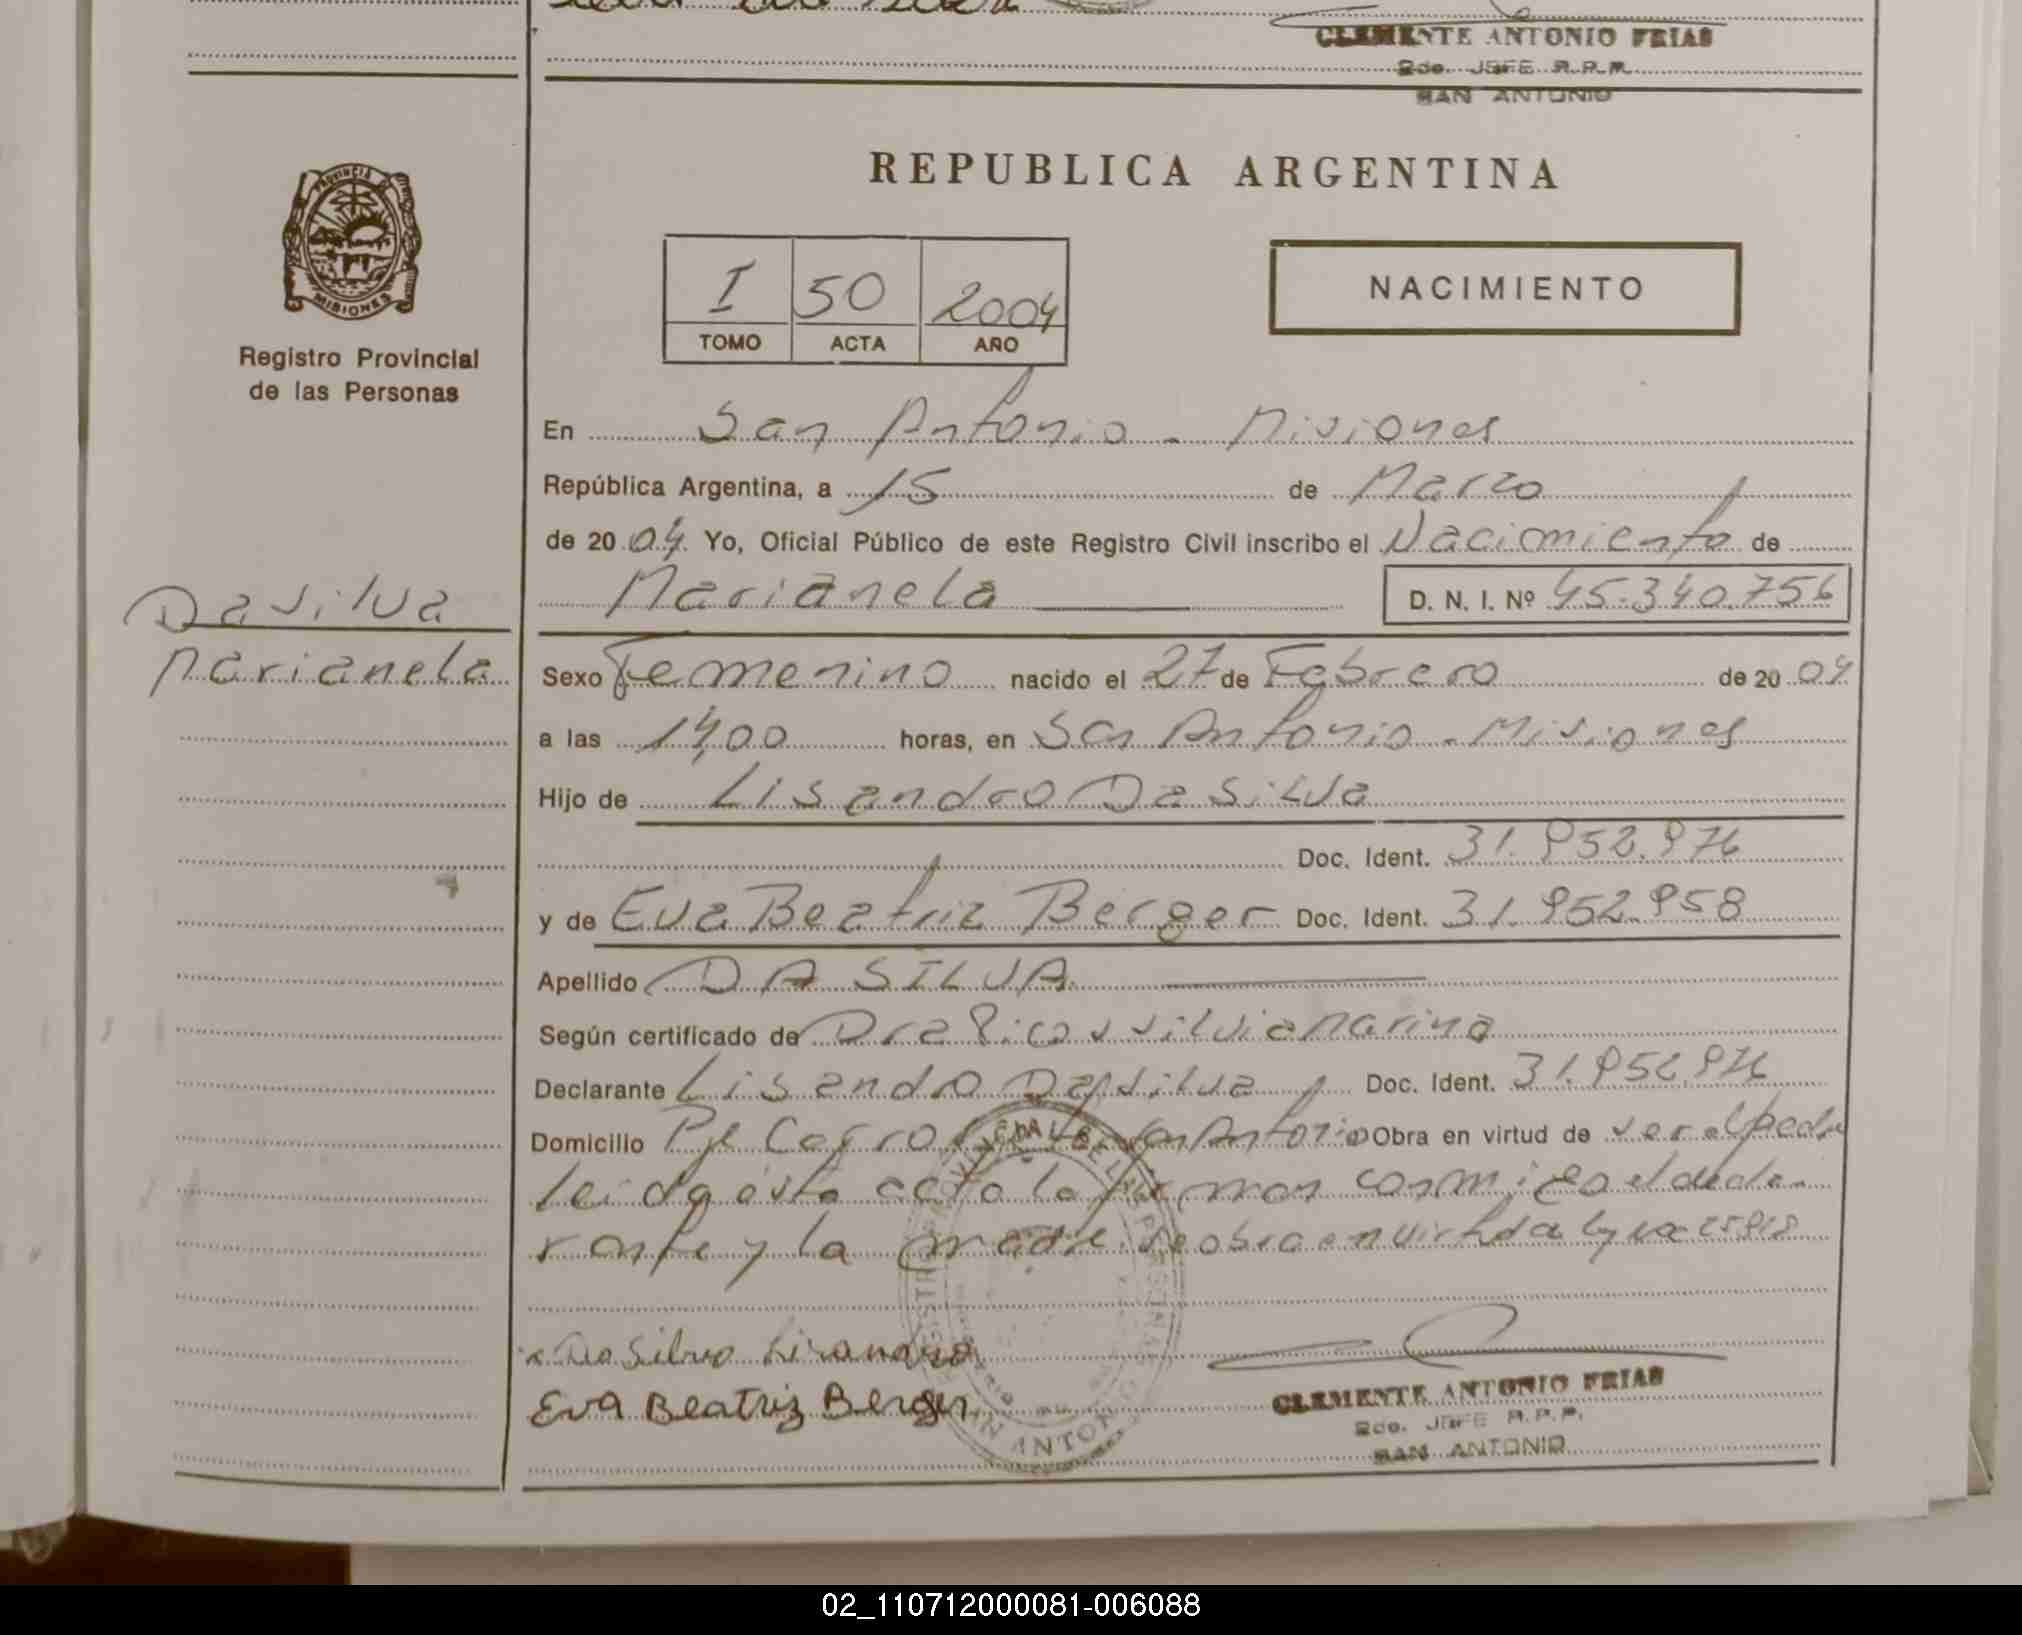 CLEMENTE ANTONIO FRIAS
Rdo. JEFE R.P.P.
SAN ANTONIO
PROVINCIA DE MISIONES
Registro Provincial
de las Personas
REPUBLICA ARGENTINA
I 50 2004
TOMO ACTA AÑO
NACIMIENTO
En San Antonio - Misiones
República Argentina, a 15 de Marzo
de 2004 Yo, Oficial Público de este Registro Civil inscribo el Nacimiento de
Marianela D. N. I. Nº 45.340.756
Da Silva
Marianela
Sexo Femenino nacido el 27 de Febrero de 2004
a las 14,00 horas, en San Antonio - Misiones
Hijo de Lisandro Da Silva
Doc. Ident. 31.952.976
y de Eva Beatriz Berger Doc. Ident. 31.952.958
Apellido DA SILVA
Según certificado de Dra Silvia Marina
Declarante Lisandro Da Silva Doc. Ident. 31.952.976
Domicilio Pje San Antonio Obra en virtud de ser el padre
leida esta acta la firman conmigo el decla-
rante y la madre. Se obra en virtud a ley
Da Silva Lisandro
Eva Beatriz Berger
CLEMENTE ANTONIO FRIAS
Rdo. JEFE R.P.P.
SAN ANTONIO
02_110712000081-006088